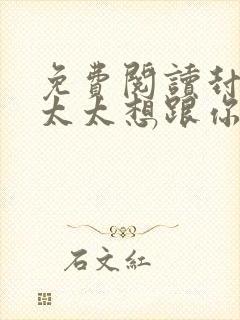 免費閱讀封
太太想跟你
石文紅